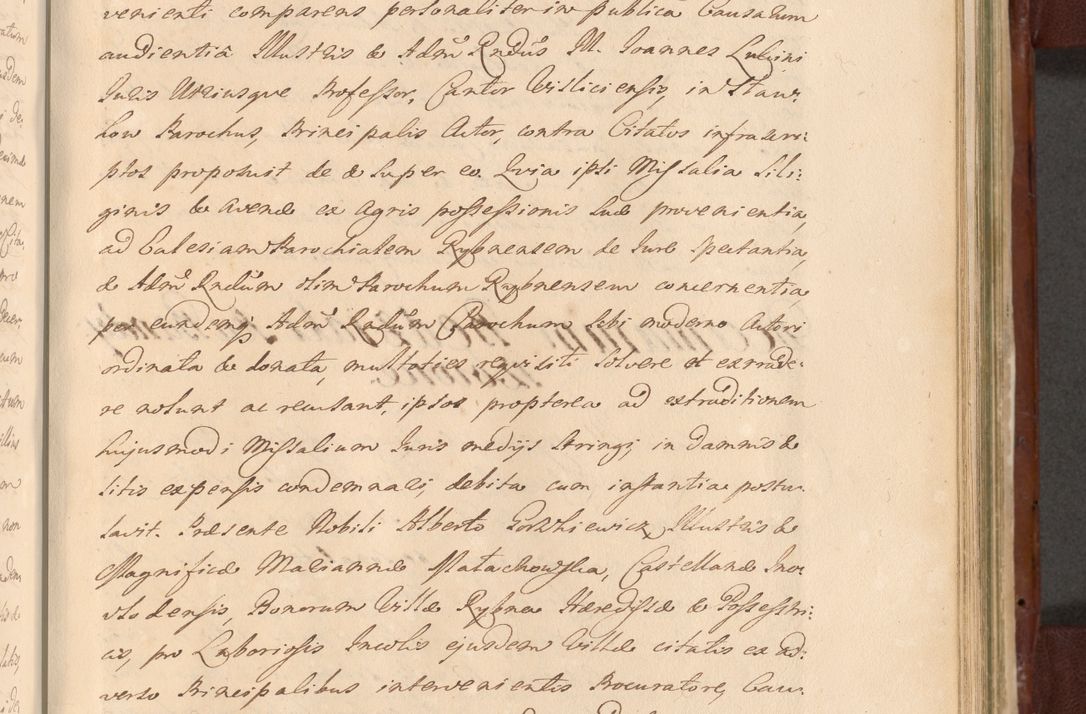 venienti comparens personaliter in publica Causarum
audientia Illustris & Adm̃ Rndũs M. Joannes Lubini
Juris Utriusque Professor, Cantor Visliciensis, in Staw:
kow Parochus, Principalis Actor, contra Citatos infrascri:
ptos proposuit de & super eo. Quia ipsi Missalia Sili:
ginis & Avenæ ex Agris possessionis suæ provenientia,
ad Ecclesiam Parochialem Rybnensem de Jure spectantia,
& Adm̃ Rndũm olim Parochum Rybnensem concernentia
per eundemq; Adm̃ Rndũm Parochum sibi moderno Actori
ordinata & donata, multoties requisiti solvere et extrade:
re nolunt ac recusant, ipsos propterea ad extraditionem
hujusmodi Missalium Juris medijs stringi, in damnis &
litis expensis condemnari, debita cum instantia postu:
lavit. Præsente Nobili Alberto Gorzkiewicz, Illustris &
Magnificæ Mariannæ Małachowska, Castellanæ Ino:
vlodensis, Bonorum Villæ Rybna Hæredissæ & Possesstri:
cis, pro Laboriosis Incolis ejusdem Villæ citatis ex ad:
verso Principalibus intervenientis Procuratore, Cau: